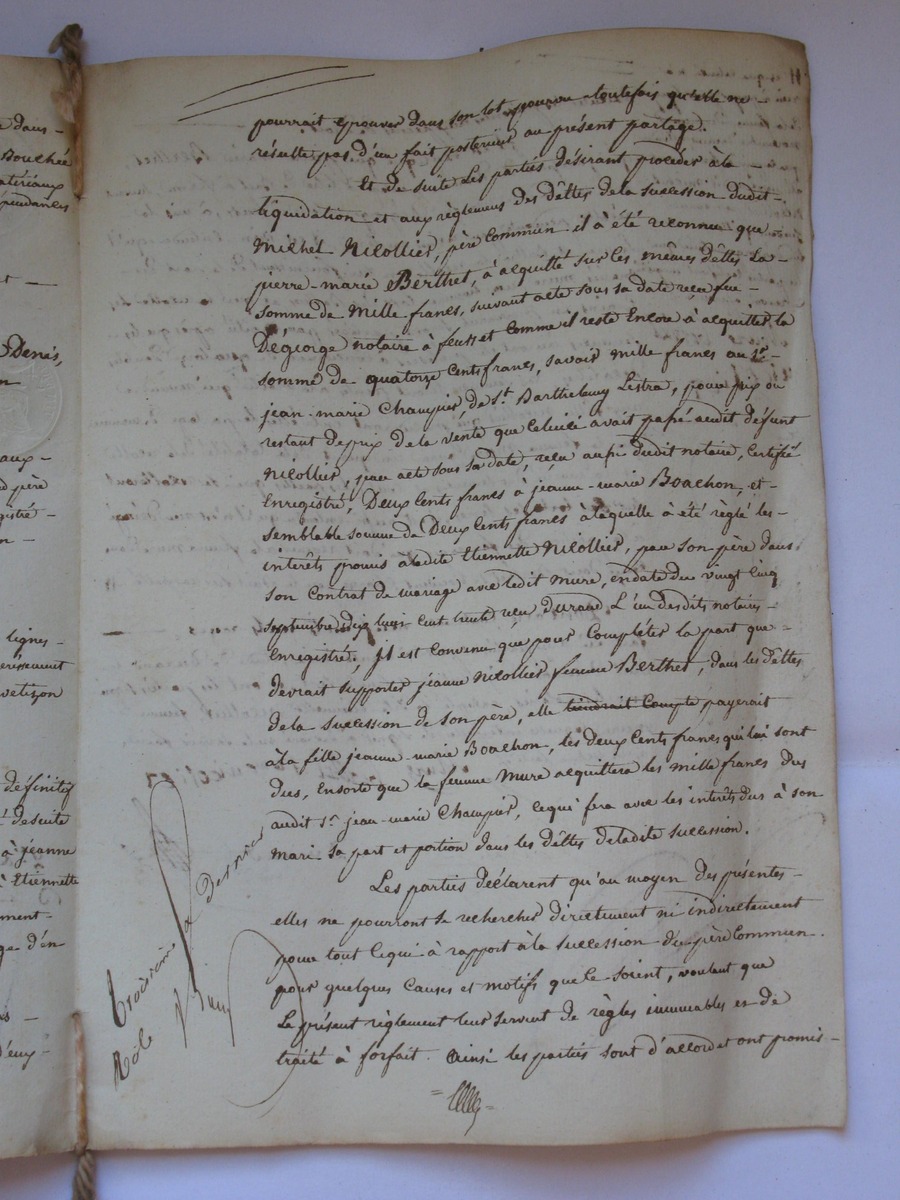 e dans -
Bouchée
atériaux
pendances
et -
Denis,
n
aux -
d père
gistré -
n -
lignes -
vetizon
définitif
desuite
à jeanne
à Etiennette
ment -
ge d'en
d'eux -
pourrait éprouver dans son lot, pourvu toutefois qu'elle ne -
résulte pas d'un fait postérieur au présent partage.
Et de suite Les parties désirant procéder à la -
liquidation et aux règlemens des dêttes de la succession dudit -
Michel Nicollier, père commun il à été reconnu que -
pierre-marie Berthet, à acquitté sur les mêmes dêttes La -
somme de Mille francs, suivant acte sous sa date reçu Me -
Dégeorge notaire à feurs et comme il reste Encore à acquitter la
somme de quatorze Cents francs, savoir mille francs au Sr -
jean-marie Champier, de St. Barthelemy Lestra, pour prix ou
restant de prix de la vente que Celui ci avait passé audit défunt
Nicollier, par acte sous sa date, reçu aussi dudit notaire, Certifié
Enregistré, Deux Cents francs à jeanne-marie Boachon, et -
semblable somme de Deux Cents francs à laquelle à été réglé les -
interêts promis à ladite Etiennette Nicollier, par son père dans
son Contrat de mariage avec ledit Mure, en date du vingt Cinq
septembre dix huit Cent trente reçu durand L'un desdits notaires -
Enregistré, Il est convenu que pour Complêter la part que -
devrait supporter jeanne Nicollier femme Berthet, dans les dêttes
de la succession de son père, elle tiendrait Compte payerait
à la fille jeanne-marie Boachon, les deux Cents francs qui lui sont
dus, Ensorte que la femme Mure acquittera les mille francs dus
audit Sr. jean-marie Champier, Cequi fera avec les interêts dus à son
mari sa part et portion dans les dêttes deladite succession.
Les parties déclarent qu'au moyen des présentes -
elles ne pourront se rechercher directement ni indirectement
pour tout Cequi à rapport à la succession du père Commun.
pour quelques Causes et motifs que Ce soient, voulant que
Le présent règlement leur servent de règles immuables et de
traité à forfait. Ainsi les parties sont d'accord et ont promis -
Troisième et dernier
Rôle